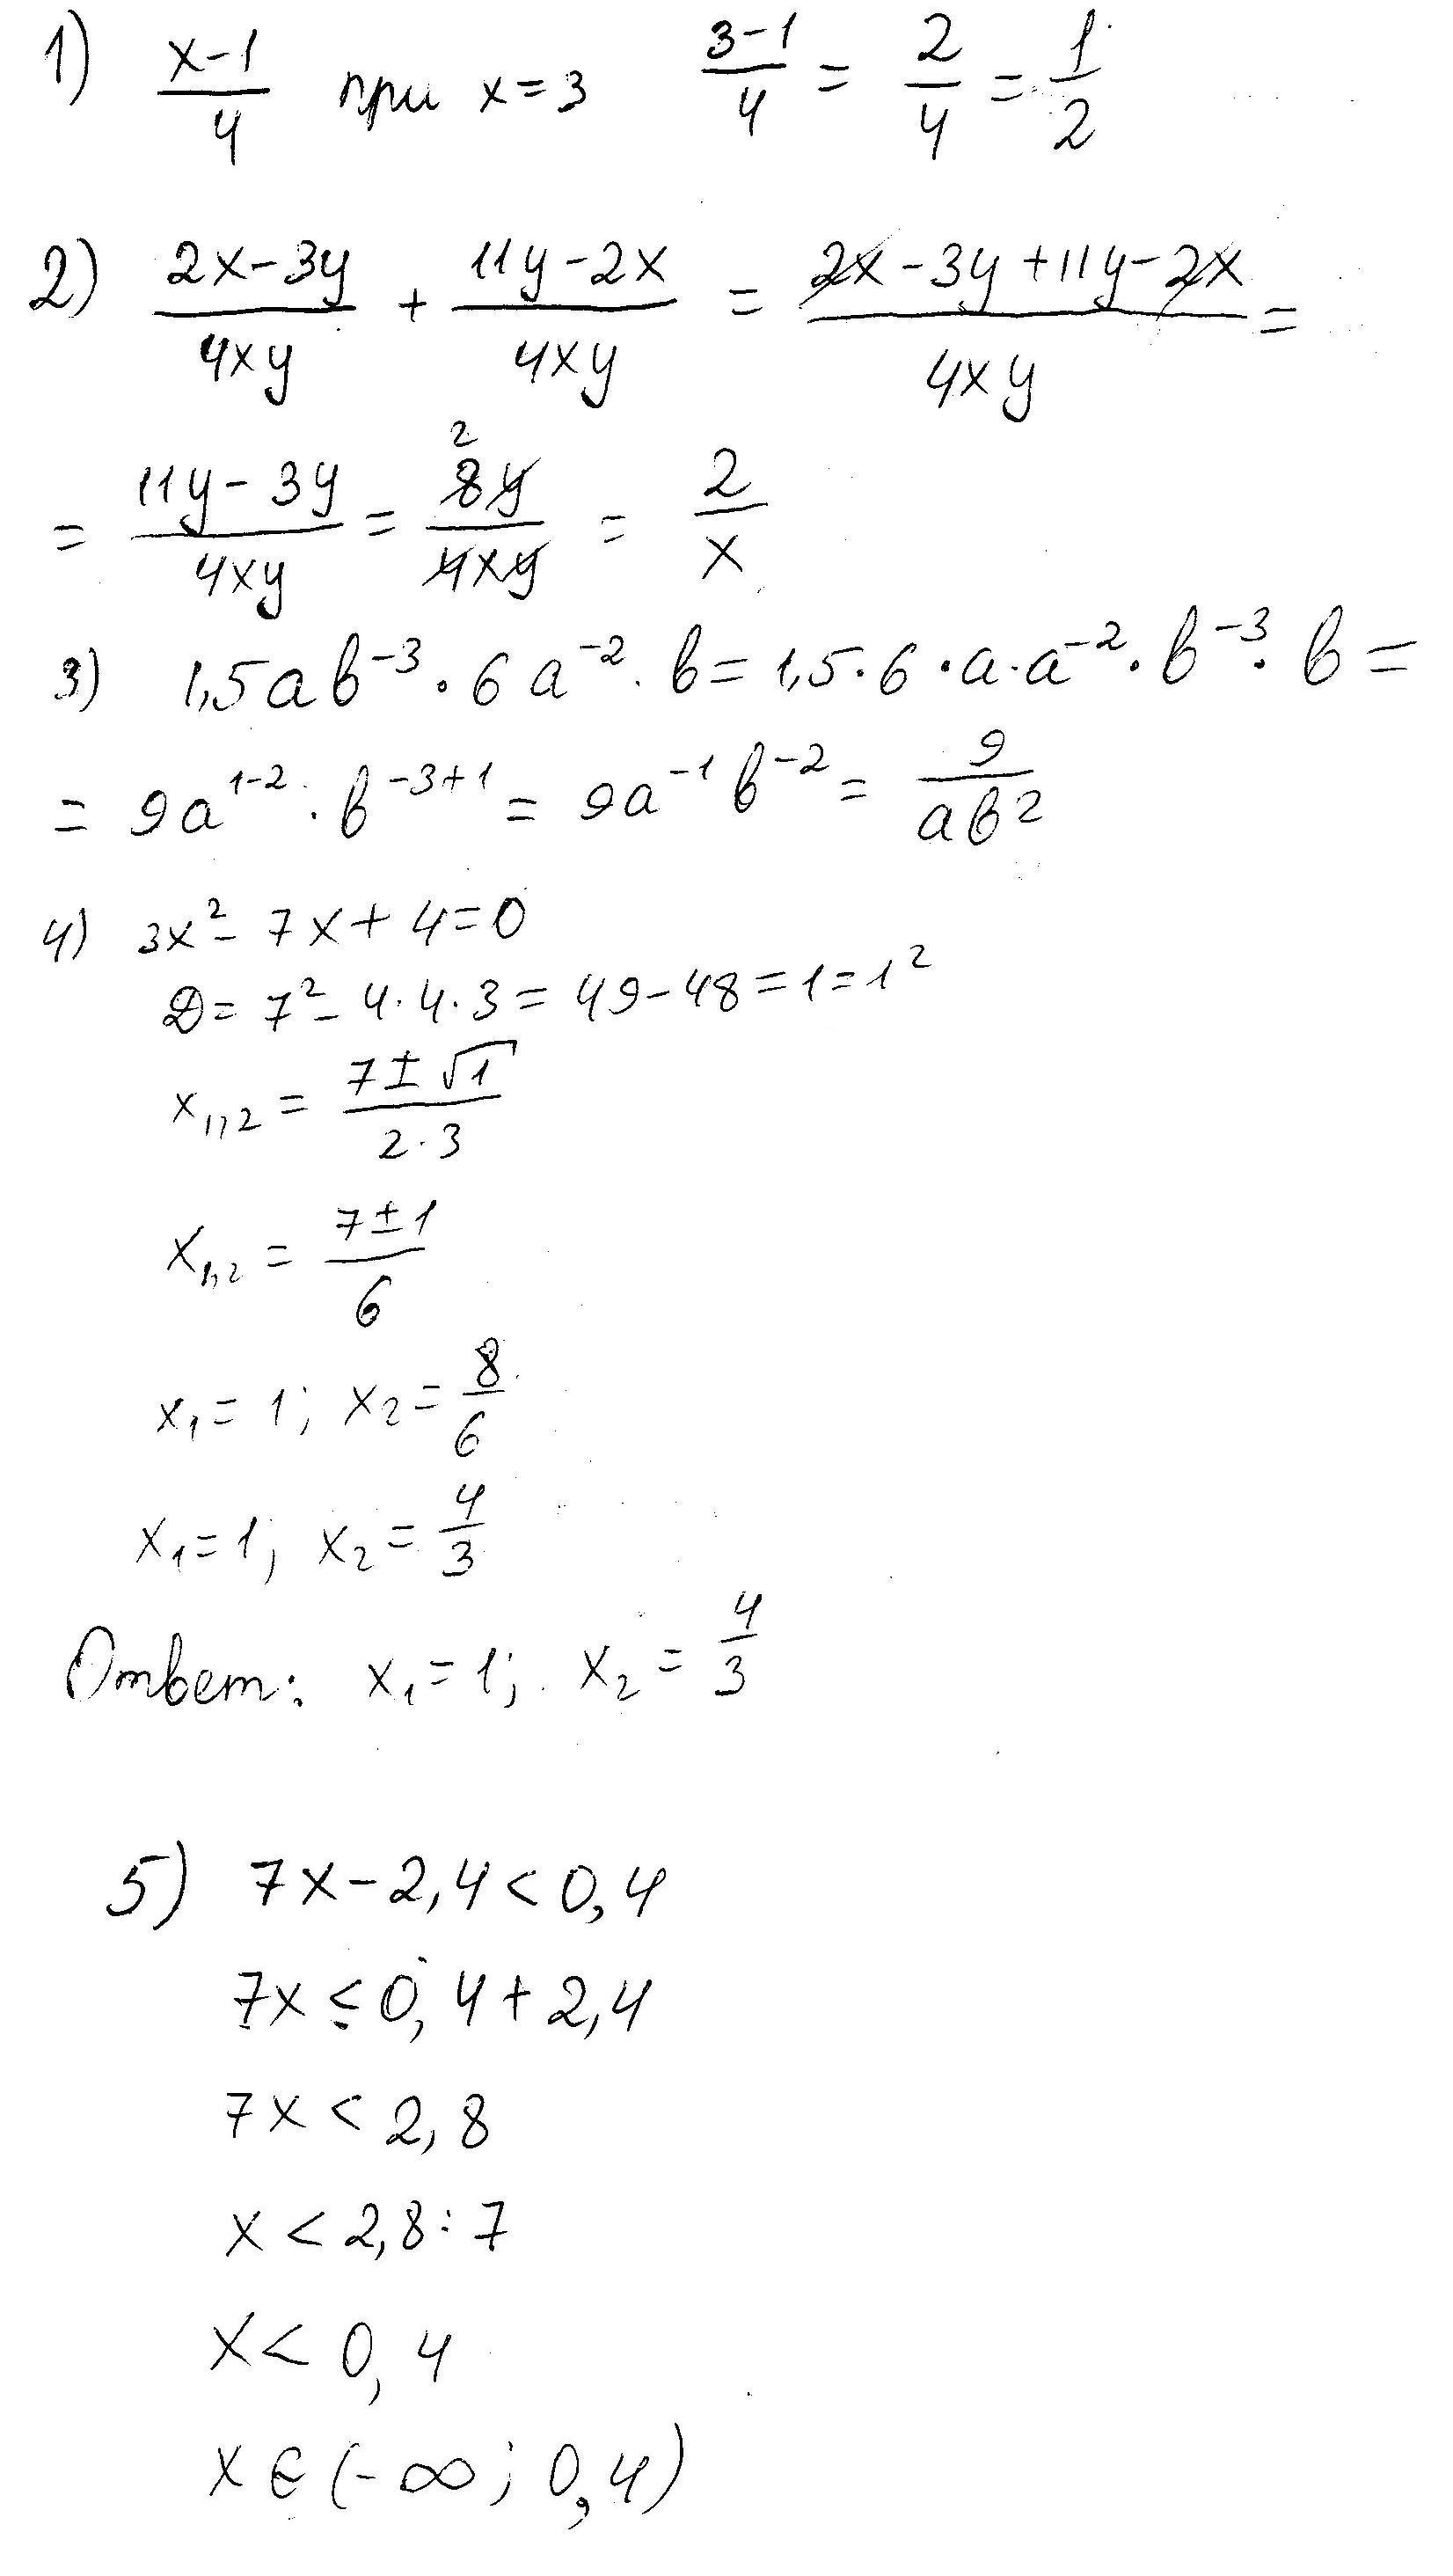 1) (x-1)/4 при x=3 (3-1)/4 = 2/4 = 1/2
2) (2x-3y)/(4xy) + (11y-2x)/(4xy) = (2x-3y+11y-2x)/(4xy) =
= (11y-3y)/(4xy) = (8y)/(4xy) = 2/x
3) 1,5ab⁻³·6a⁻²·b = 1,5·6·a·a⁻²·b⁻³·b =
= 9a¹⁻²·b⁻³⁺¹ = 9a⁻¹b⁻² = 9/(ab²)
4) 3x²-7x+4=0
D=7²-4·4·3=49-48=1=1²
x₁,₂ = (7±√1)/(2·3)
x₁,₂ = (7±1)/6
x₁=1; x₂=8/6
x₁=1; x₂=4/3
Ответ: x₁=1; x₂=4/3
5) 7x-2,4<0,4
7x≤0,4+2,4
7x<2,8
x<2,8:7
x<0,4
x∈(-∞; 0,4)